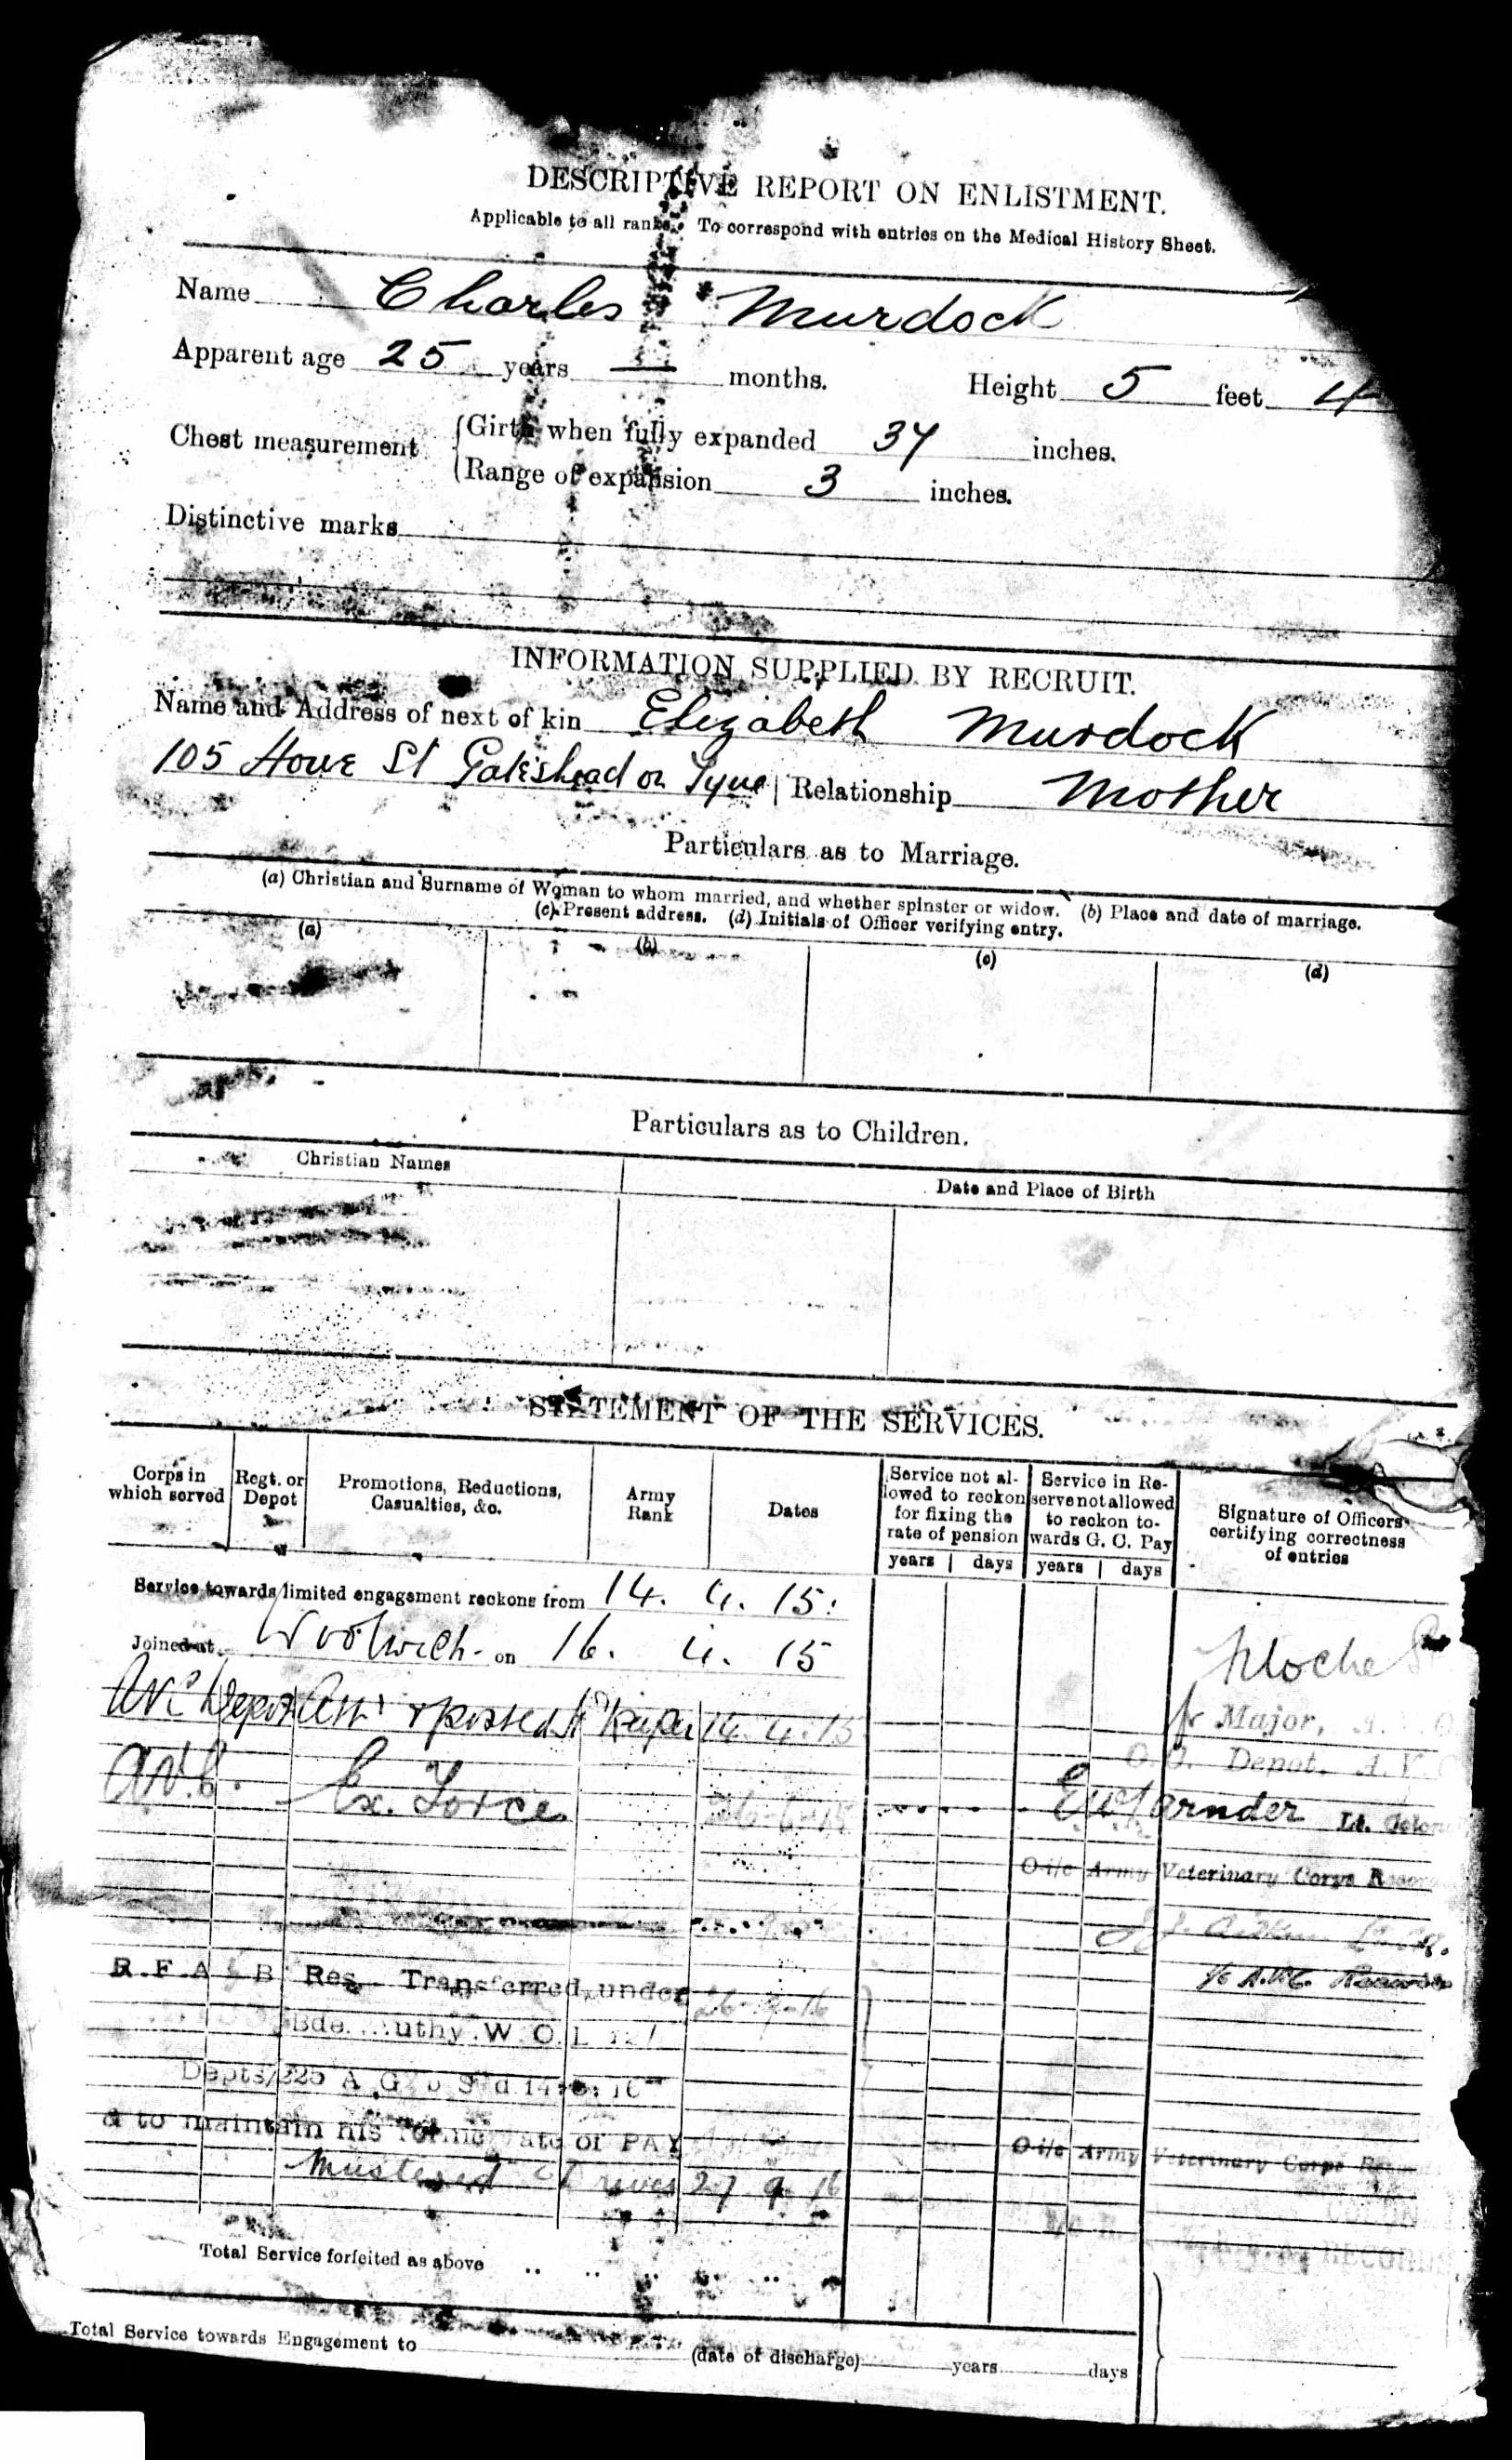 DESCRIPTIVE REPORT ON ENLISTMENT.
Applicable to all ranks. To correspond with entries on the Medical History Sheet.
Name Charles Murdock
Apparent age 25 years — months. Height 5 feet 4
Chest measurement {Girth when fully expanded 34 inches.
{Range of expansion 3 inches.
Distinctive marks
INFORMATION SUPPLIED BY RECRUIT.
Name and Address of next of kin Elizabeth Murdock
105 Howe St Gateshead on Tyne | Relationship Mother
Particulars as to Marriage.
(a) Christian and Surname of Woman to whom married, and whether spinster or widow. (b) Place and date of marriage.
(c) Present address. (d) Initials of Officer verifying entry.
(a) (b) (c) (d)
Particulars as to Children.
Christian Names Date and Place of Birth
STATEMENT OF THE SERVICES.
Corps in which served Regt. or Depot Promotions, Reductions, Casualties, &c. Army Rank Dates Service not allowed to reckon for fixing the rate of pension Service in Reserve not allowed to reckon towards G. C. Pay Signature of Officers certifying correctness of entries
years days years days
Service towards limited engagement reckons from 14. 4. 15.
Joined at Woolwich on 16. 4. 15
AVC Depot & posted 14. 4. 15
for Major, A.
O.C. Depot. A.V.
A.V.C. Ex. Force 26-6-15 Lt. Colonel
O i/c Army Veterinary Corps
i/c A.V.C. Records
R.F.A B Res Transferred under 26-9-16
Bde. Authy W.O.L
Depts/225 A.G.
& to maintain his rate of PAY
O i/c Army Veterinary Corps
Mustered Driver 27 9 16
RECORDS
Total Service forfeited as above
Total Service towards Engagement to (date of discharge) years days